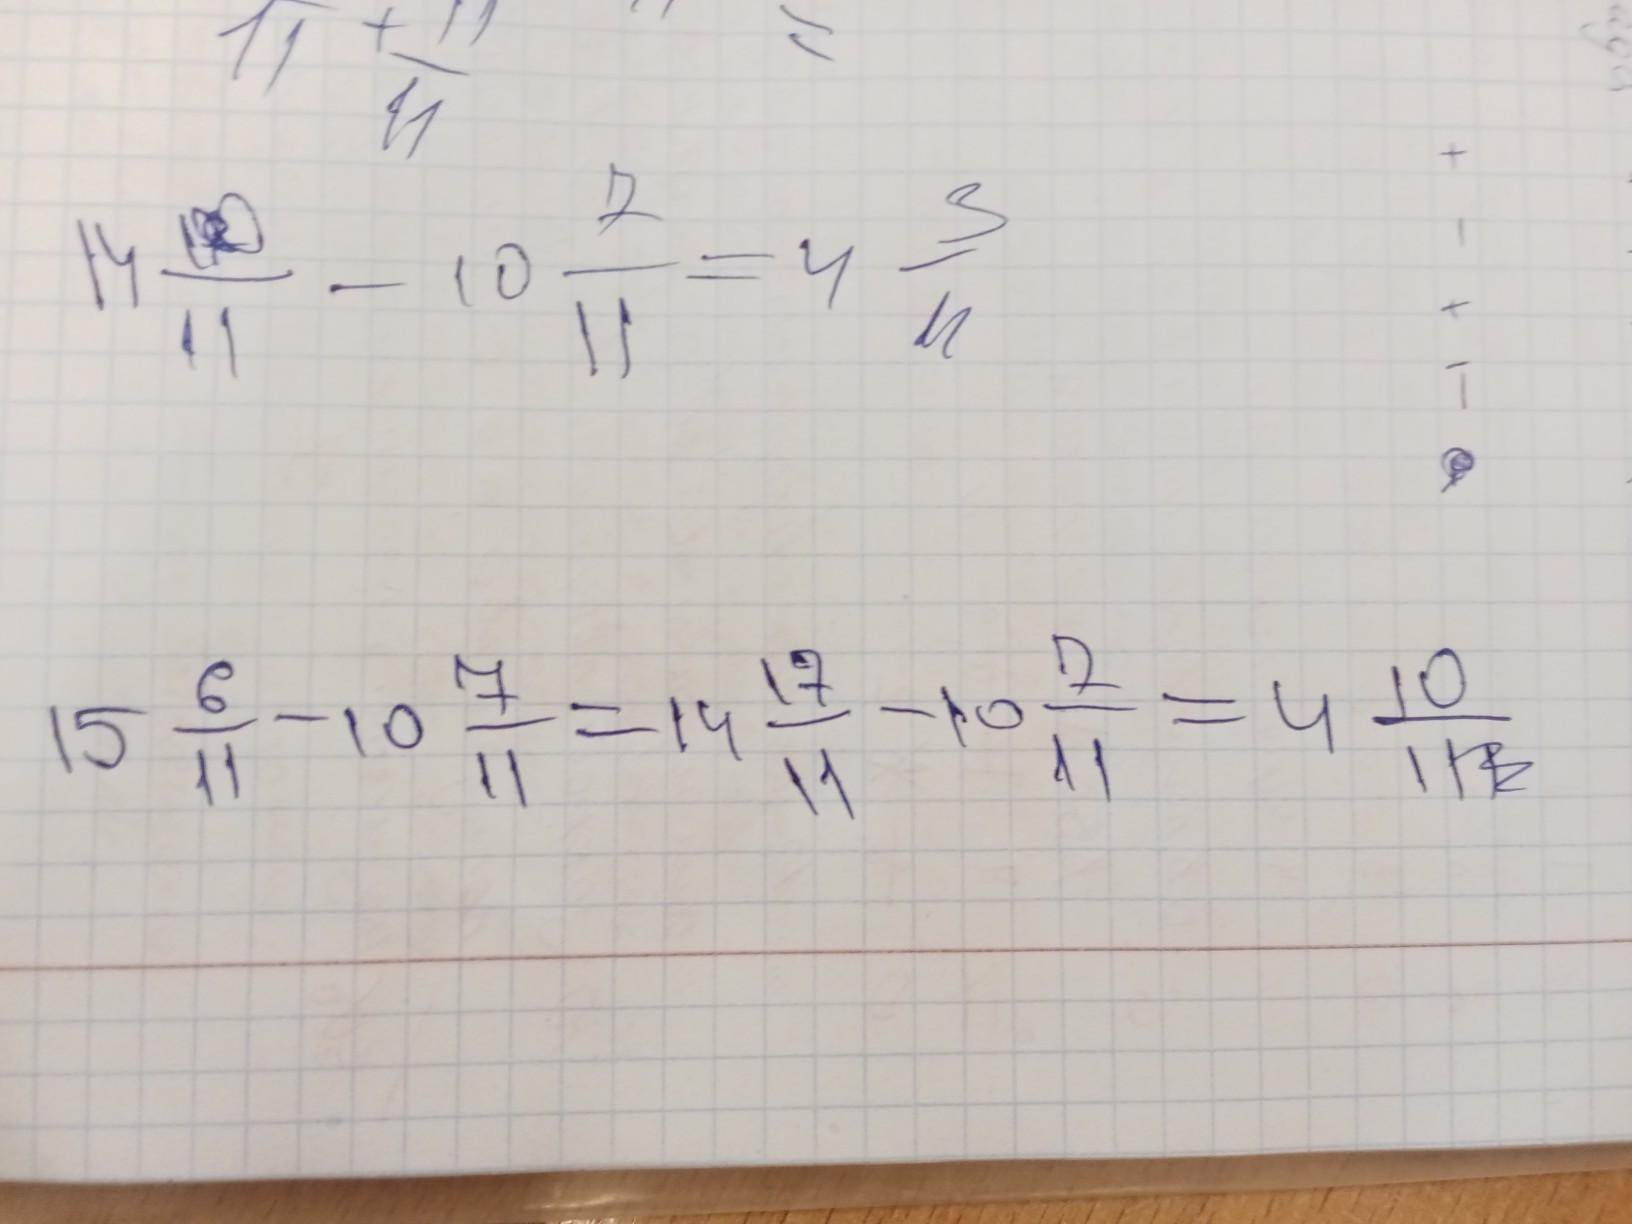 14 10/11 - 10 7/11 = 4 3/11
15 6/11 - 10 7/11 = 14 17/11 - 10 7/11 = 4 10/11